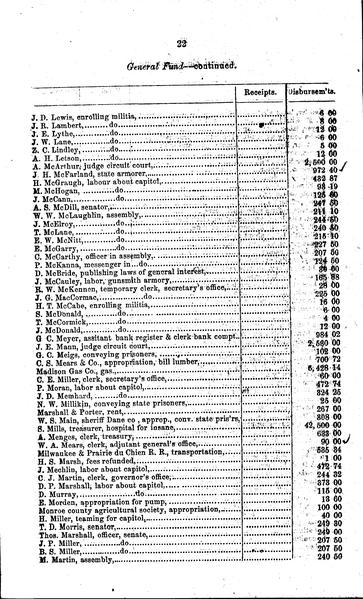 22
General Fund—continued.
Receipts. Disbursem'ts.
J. D. Lewis, enrolling militia, 6 00
J. R. Lambert, do 8 00
J. E. Lythe, do 12 00
J. W. Lane, do 6 00
Z. C. Lindley, do 5 00
A. H. Letson, do 12 00
A. McArthur, judge circuit court, 2,500 00
J. H. McFarland, state armorer, 972 40
H. McGraugh, labour about capitol, 432 87
M. McHogan, do 98 19
J. McCann, do 125 60
A. S. McDill, senator, 247 50
W. W. McLaughlin, assembly, 211 10
J. McElroy, do 244 50
T. McLane, do 240 50
E. W. McNitt, do 215 10
E. McGarry, do 227 50
C. McCarthy, officer in assembly, 207 50
P. McKanna, messenger in do 124 50
D. McBride, publishing laws of general interest, 80 00
J. McCauley, labor, gunsmith armory, 165 88
R. W. McKennon, temporary clerk, secretary's office, 28 00
J. G. MacCormac, do do 225 00
H. T. McCabe, enrolling militia, 16 00
S. McDonald, do 6 00
T. McCormick, do 4 00
J. McDonald, do 12 00
G C. Meyer, assitant bank register & clerk bank compt. 984 02
J. E. Mann, judge circuit court, 2,500 00
G. C. Meigs, conveying prisoners, 102 00
C. S. Mears & Co., appropriation, bill lumber, 700 72
Madison Gas Co., gas, 6,428 14
C. E. Miller, clerk, secretary's office, 60 00
P. Moran, labor about capitol, 472 74
J. D. Memhard, do 324 25
N. W. Millikin, conveying state prisoners, 25 60
Marshall & Porter, rent, 267 00
W. S. Main, sheriff Dane co, approp., conv. state pris'rs, 308 00
S. Mills, treasurer, hospital for insane, 42,500 00
A. Menges, clerk, treasury, 683 00
W. A. Mears, clerk, adjutant general's office, 90 00
Milwaukee & Prairie du Chien R. R., transportation, 585 34
H. S. Marsh, fees refunded, 1 00
J. Mechlin, labor about capitol, 472 74
C. J. Martin, clerk, governor's office, 244 32
D. P. Marshall, labor about capitol, 373 00
D. Murray, do 115 00
E. Morden, appropriation for pump, 18 60
Monroe county agricultural society, appropriation, 100 00
H. Miller, teaming for capitol, 40 00
T. D. Morris, senator, 249 80
Thos. Marshall, officer, senate, 249 00
J. P. Miller, do 207 50
B. S. Miller, do 207 50
M. Martin, assembly, 240 50